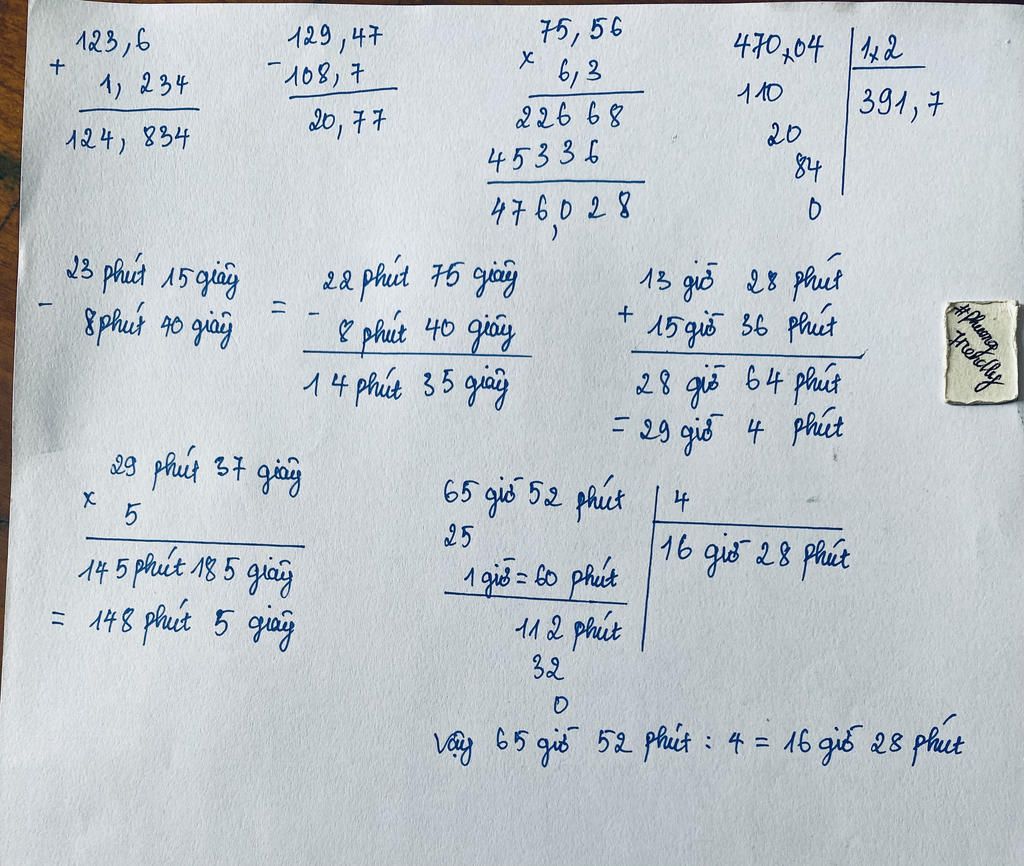 123,6
+
1,234
124,834
129,47
-
108,7
20,77
75,56
x
6,3
22668
45336
476,028
470,04
1,2
110
391,7
20
84
0
23 phút 15 giây
-
8 phút 40 giây
=
22 phút 75 giây
-
8 phút 40 giây
14 phút 35 giây
13 giờ 28 phút
+
15 giờ 36 phút
28 giờ 64 phút
= 29 giờ 4 phút
29 phút 37 giây
x
5
145 phút 185 giây
= 148 phút 5 giây
65 giờ 52 phút
4
25
16 giờ 28 phút
1 giờ = 60 phút
112 phút
32
0
Vậy 65 giờ 52 phút : 4 = 16 giờ 28 phút